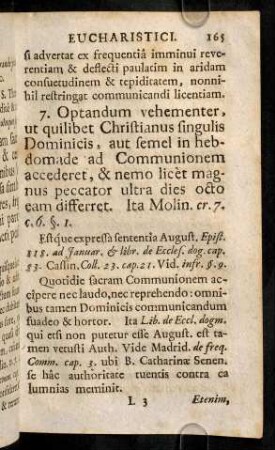 EUCHARISTICI. 165
si advertat ex frequentiâ imminui reve-
rentiam & deflecti paulatim in aridam
consuetudinem & tepiditatem, nonni-
hil restringat communicandi licentiam.
7. Optandum vehementer,
ut quilibet Christianus singulis
Dominicis, aut semel in heb-
domade ad Communionem
accederet, & nemo licèt mag-
nus peccator ultra dies octo
eam differret. Ita Molin. cr. 7.
c. 6. §. 1.
Estque expressa sententia August. Epist.
118. ad Januar. & libr. de Ecclef. dog. cap.
53. Cassin. Coll. 23. cap. 21. Vid. infr. §. 9.
Quotidie sacram Communionem ac-
cipere nec laudo, nec reprehendo: omni-
bus tamen Dominicis communicandum
suadeo & hortor. Ita Lib. de Eccl. dogm.
qui etsi non putetur esse August. est ta-
men vetusti Auth. Vide Madrid. de freq.
Comm. cap. 3. ubi B. Catharinæ Senen.
se hâc authoritate tuentis contra ca
lumnias meminit.
L 3 Etenim,